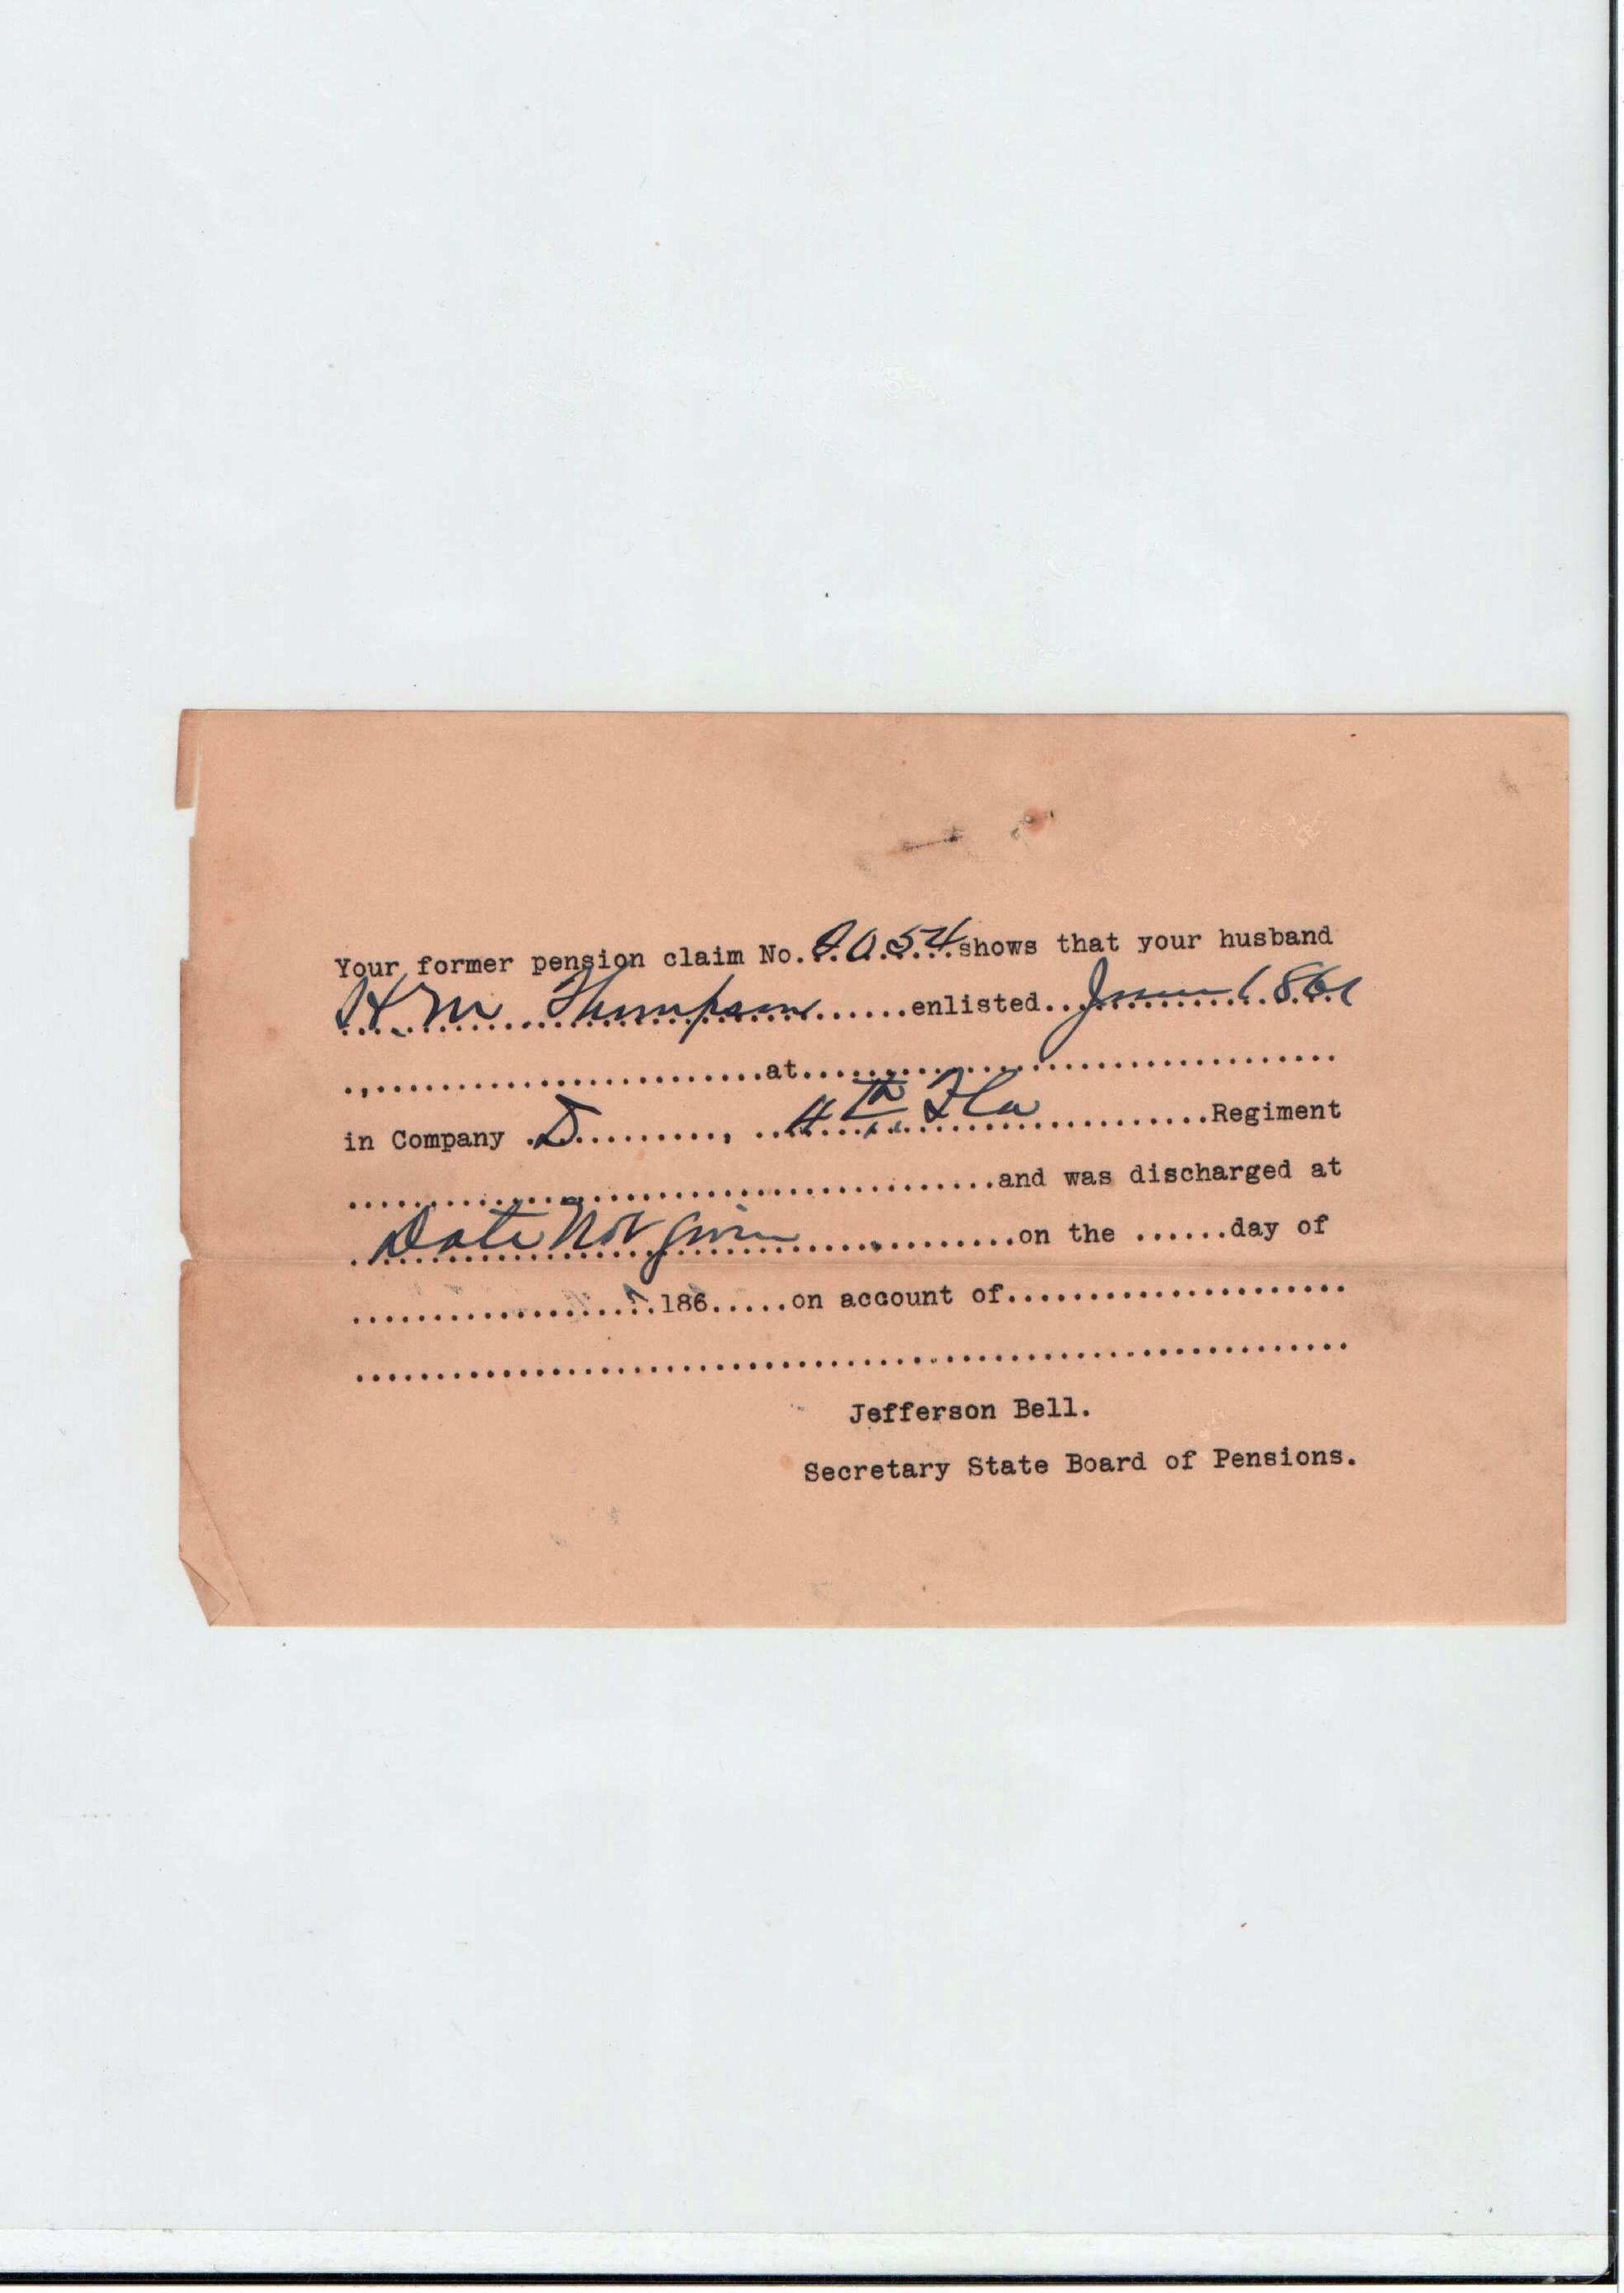 Your former pension claim No. 8054 shows that your husband
H. M Thompson enlisted June 1861
at
in Company D , 4th Fla Regiment
and was discharged at
Date Not given on the day of
186 on account of
Jefferson Bell.
Secretary State Board of Pensions.